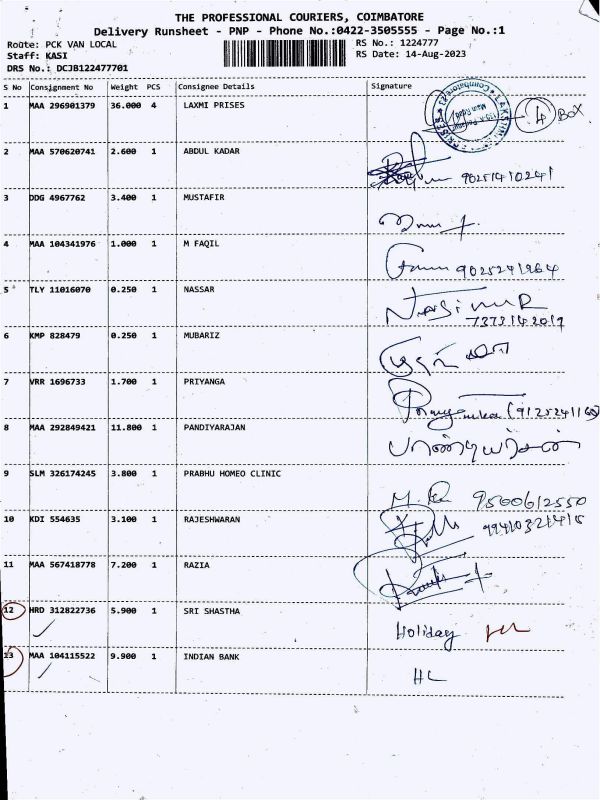 THE PROFESSIONAL COURIERS, COIMBATORE
Delivery Runsheet - PNP - Phone No.:0422-3505555 - Page No.:1
Route: PCK VAN LOCAL
RS No.: 1224777
Staff: KASI
RS Date: 14-Aug-2023
DRS No.: DCJB122477701
S No Consignment No Weight PCS Consignee Details Signature
1 MAA 296901379 36.000 4 LAXMI PRISES 4 BOX
2 MAA 570620741 2.600 1 ABDUL KADAR
90251410241
3 DDG 4967762 3.400 1 MUSTAFIR
4 MAA 104341976 1.000 1 M FAQIL
9025291964
5 TLY 11016070 0.250 1 NASSAR
6 KMP 828479 0.250 1 MUBARIZ
7 VRR 1696733 1.700 1 PRIYANGA
8 MAA 292849421 11.800 1 PANDIYARAJAN
பாண்டியராசன்
9 SLM 326174245 3.800 1 PRABHU HOMEO CLINIC
9500612550
10 KDI 554635 3.100 1 RAJESHWARAN
11 MAA 567418778 7.200 1 RAZIA
12 HRD 312822736 5.900 1 SRI SHASTHA
Holiday HL
13 MAA 104115522 9.900 1 INDIAN BANK
HL